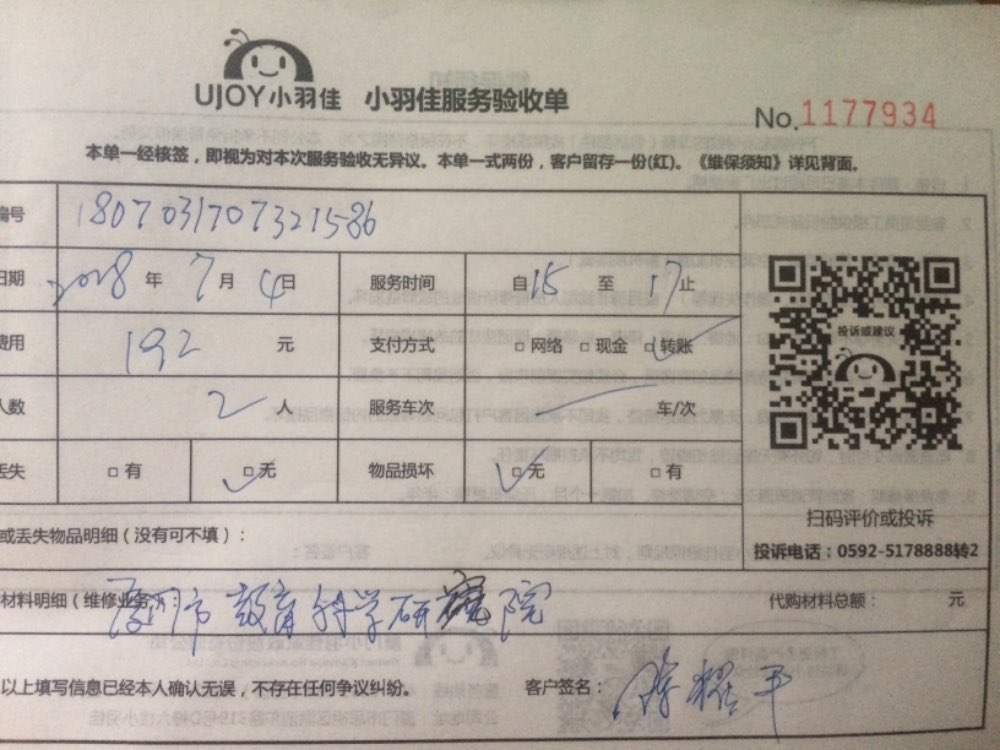 UJOY小羽佳 小羽佳服务验收单
No.1177934
本单一经核签，即视为对本次服务验收无异议。本单一式两份，客户留存一份(红)。《维保须知》详见背面。
编号 1807031707321586
日期 2018 年 7 月 4 日 服务时间 自 15 至 17 止
费用 192 元 支付方式 □ 网络 □ 现金 □ 转账
人数 2 人 服务车次 车/次
丢失 □ 有 □ 无 物品损坏 □ 无 □ 有
投诉或建议
扫码评价或投诉
投诉电话：0592-5178888转2
或丢失物品明细（没有可不填）：
材料明细（维修业务 厦门市教育科学研究院 代购材料总额： 元
以上填写信息已经本人确认无误，不存在任何争议纠纷。 客户签名：